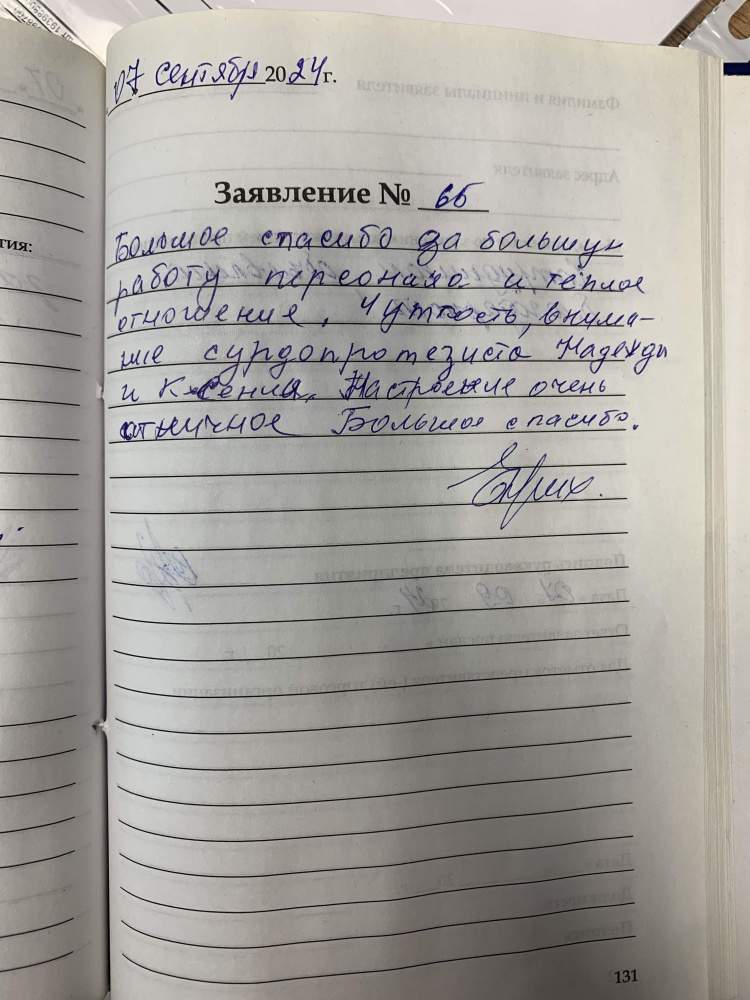 07 сентября 2024 г.
Заявление № 66
Большое спасибо за большую
работу персонала и тёплое
отношение. Чуткость, внима-
ние сурдопротезиста Надежды
и Ксении. Настроение очень
отличное Большое спасибо.
тия:
131